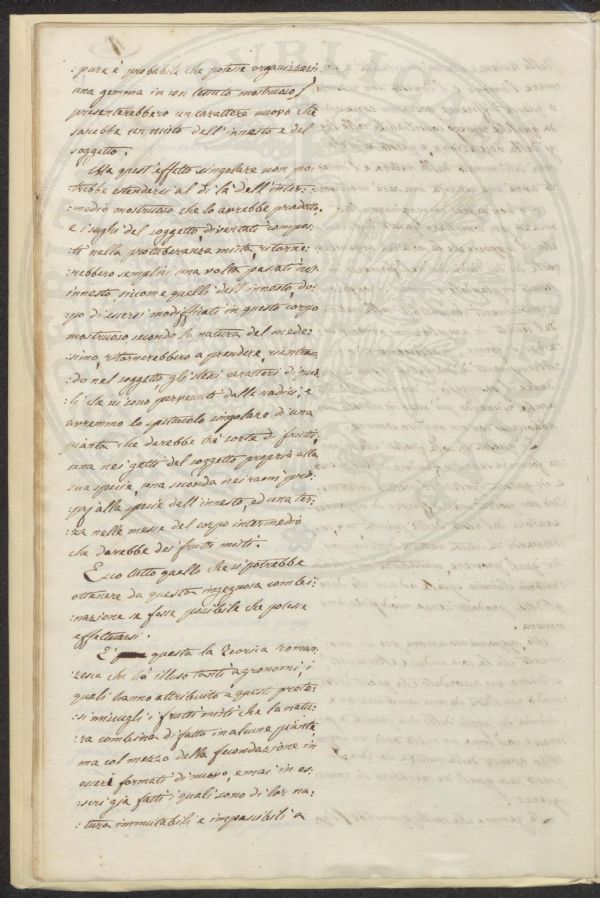 :pure è probabile che potesse organizzarsi
una gemma in un tessuto mostruoso)
presenterebbero un carattere nuovo che
sarebbe un misto dell'innesto e del
soggetto.
Ma quest'effetto singolare non po-
trebbe estendersi al di là dell'inter:
:medio mostruoso che lo avrebbe prodotto,
e i sughi del soggetto divertati compos:
:ti nella protuberanza mista, ritorne:
:rebbero semplici una volta passati nell'
innesto, siccome quelli dell'innesto, do:
:po di essersi modificati in questo corpo
mostruoso secondo la natura del mede:
:simo, ritornerebbero a prendere, rientran:
:do nel soggetto, gli stessi caratteri di quel:
:li che vi sono pervenuti dalle radici, e
avremmo lo spettacolo singolare di una
pianta che darebbe tré sorte di frutti,
una nei getti del soggetto propria alla
sua specie, una seconda nei rami pro:
:prj alla specie dell'innesto, ed una ter:
:za nelle messe del corpo intermedio
che darebbe dei frutti misti.
Ecco tutto quello che si potrebbe
ottenere da questa ingegnosa combi:
:nazione se fosse possibile che potesse
effettuarsi.
È questa la Teoria roman:
:zesca che ha illuso tanti agronomi, i
quali hanno attribuito a questi prete:
:si miscugli i frutti misti che la natu:
:ra combina di fatto in alcune piante,
ma col mezzo della fecondazione in
esseri formati di nuovo, e mai in es:
:seri già fatti i quali sono di lor na:
:tura immutabili e impassibili a